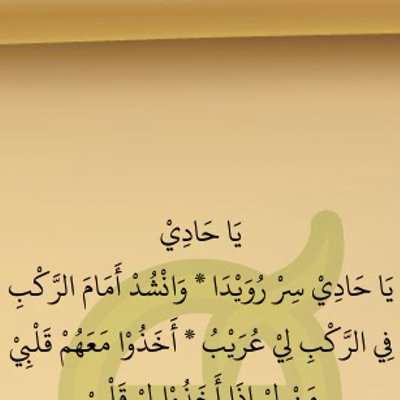 يَا حَادِيْ
يَا حَادِيْ سِرْ رُوَيْدَا * وَانْشُدْ أَمَامَ الرَّكْبِ
فِي الرَّكْبِ لِيْ عُرَيْبُ * أَخَذُوْا مَعَهُمْ قَلْبِيْ